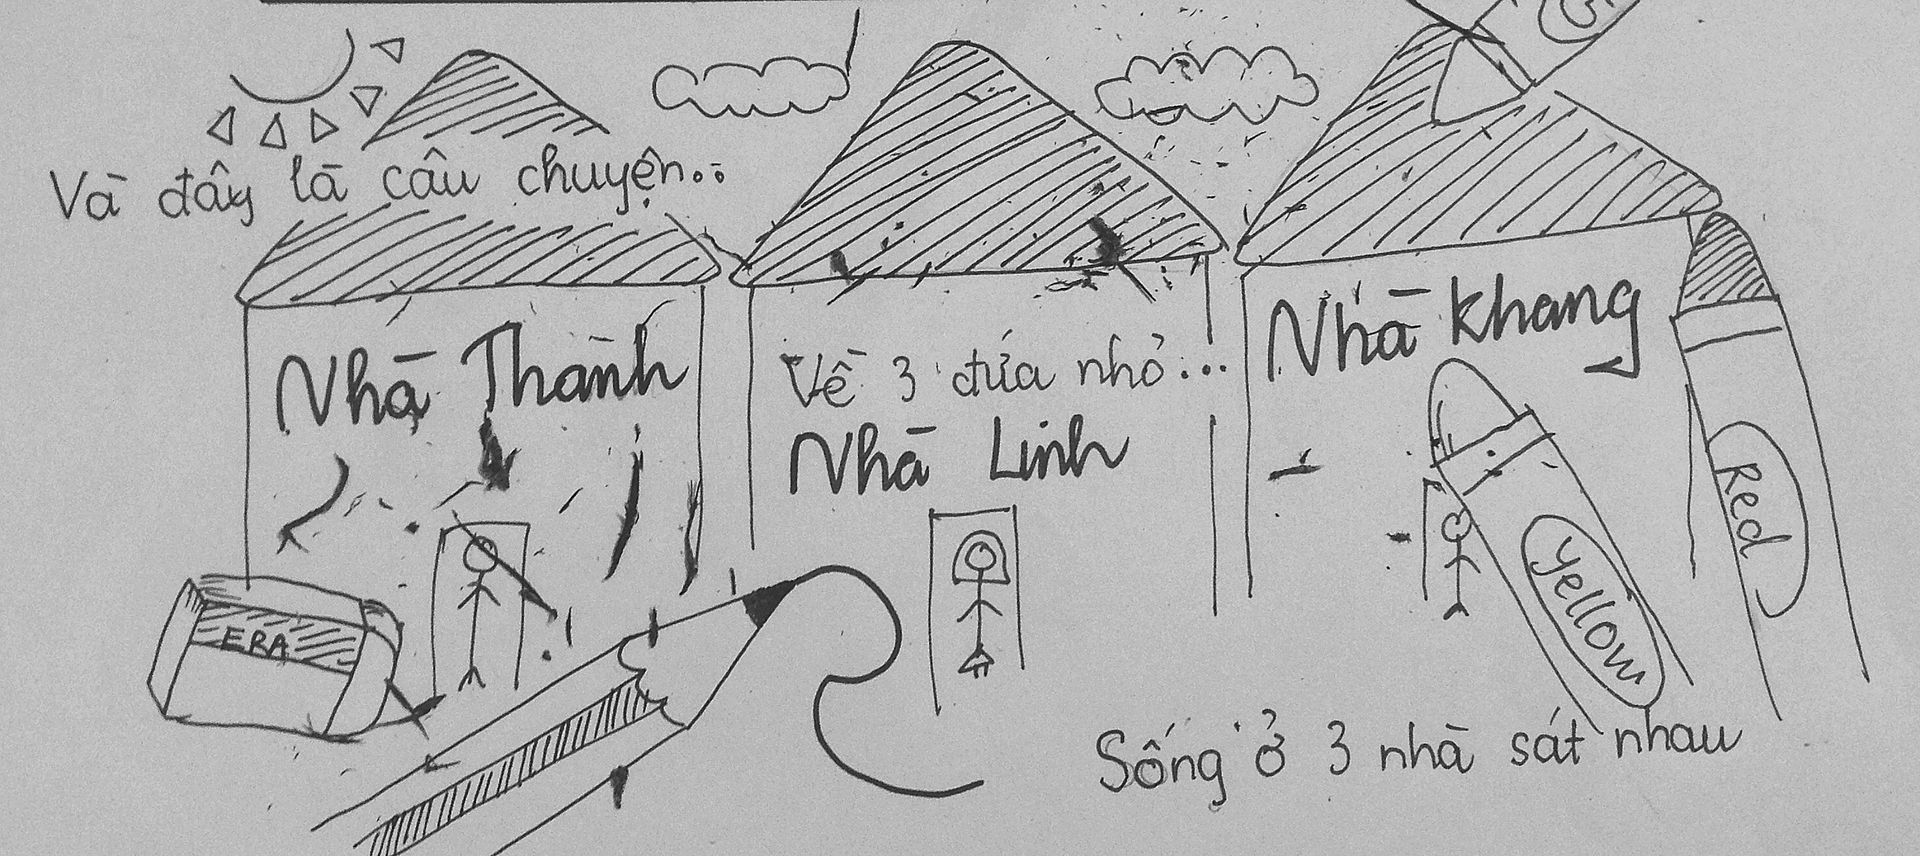 Và đây là câu chuyện...
Nhà Thành
Về 3 đứa nhỏ...
Nhà Linh
Nhà Khang
ERA
Yellow
Red
Sống ở 3 nhà sát nhau